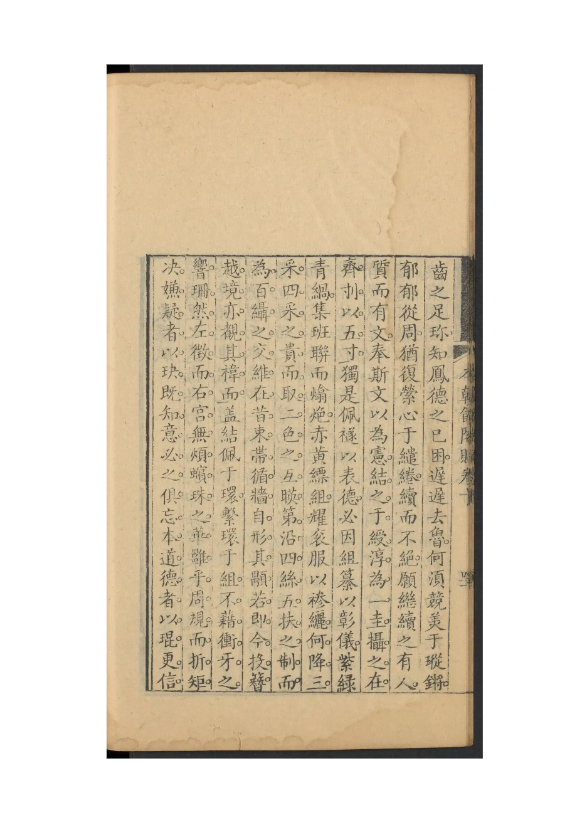 齒之足珎知鳳德之已困遲遲去魯何湏競美于瑽鏘
郁郁從周猶復縈心于繾綣續而不絕願繼續之有人
質而有文奉斯文以為憲結之于綬淳為一圭攝之在
齊刌以五寸獨是佩襚以表德必因組纂以彰儀紫緑
青緺集班聯而煸𤇻赤黄縹組耀衮服以襂纚何降三
采四采之貴而取二色之互暎第沿四絲五扶之制而
為百繦之交維在昔束帶循牆自形其顒若即今投簪
越境亦覩其褘而盖結佩于環繫環于組不藉衝牙之
響珊然左徵而右宫無煩蠙珠之華雖乎周規而折矩
決嫌疑者以玦既知意必之俱忘本道德者以琨更信
本朝館閣賦卷十